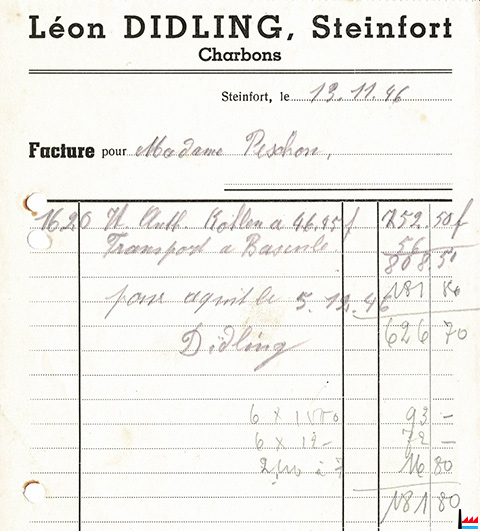 Léon DIDLING, Steinfort
Charbons
Steinfort, le 13.11.46
Facture pour Madame Peschon,
1620 K Anth. Kohlen a 46.45 f 752.50 f
Transport a Bascule 56
808.50
pour aquit le 5.12.46 181 80
Didling 626 70
6 x 1550 93 -
6 x 12 - 72 -
2,40 à 7 16 80
181 80